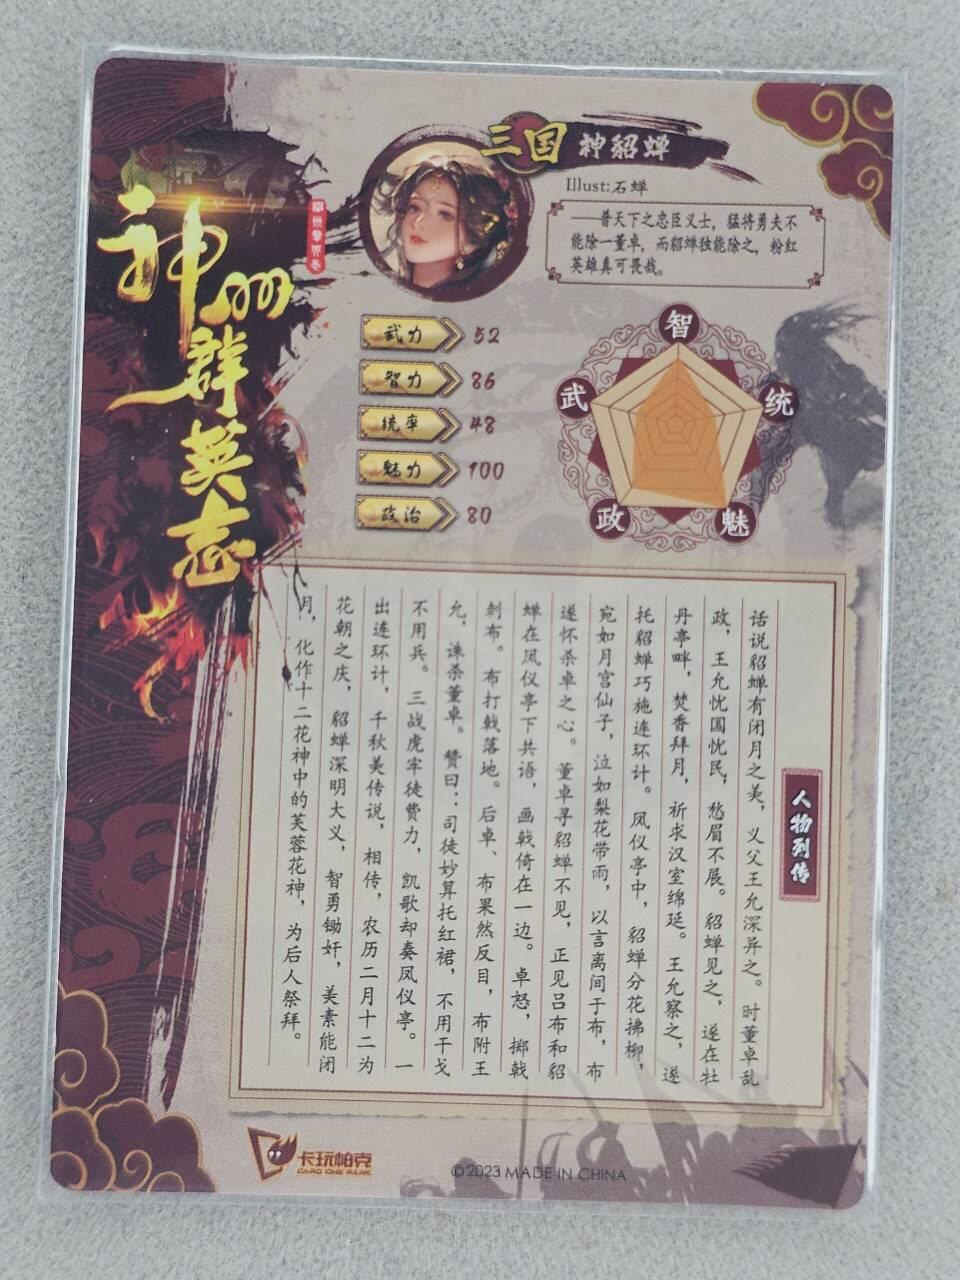 神州群英志
三国 神貂蝉
Illust:石蝉
普天下之忠臣义士，猛将勇夫不
能除一董卓，而貂蝉独能除之，粉红
英雄真可畏哉。
武力 52
智力 86
统率 48
魅力 100
政治 80
智
武
统
政
魅
人物列传
话说貂蝉有闭月之美，义父王允深异之。时董卓乱
政，王允忧国忧民，愁眉不展。貂蝉见之，遂在牡
丹亭畔，焚香拜月，祈求汉室绵延。王允察之，遂
托貂蝉巧施连环计。凤仪亭中，貂蝉分花拂柳，
宛如月宫仙子，泣如梨花带雨，以言离间于布，布
遂怀杀卓之心。董卓寻貂蝉不见，正见吕布和貂
蝉在凤仪亭下共语，画戟倚在一边。卓怒，掷戟
刺布。布打戟落地。后卓、布果然反目，布附王
允，诛杀董卓。赞曰：司徒妙算托红裙，不用干戈
不用兵。三战虎牢徒费力，凯歌却奏凤仪亭。一
出连环计，千秋美传说，相传，农历二月十二为
花朝之庆，貂蝉深明大义，智勇锄奸，美素能闭
月，化作十二花神中的芙蓉花神，为后人祭拜。
卡玩帕克
CARD ONE PARK
©2023 MADE IN CHINA